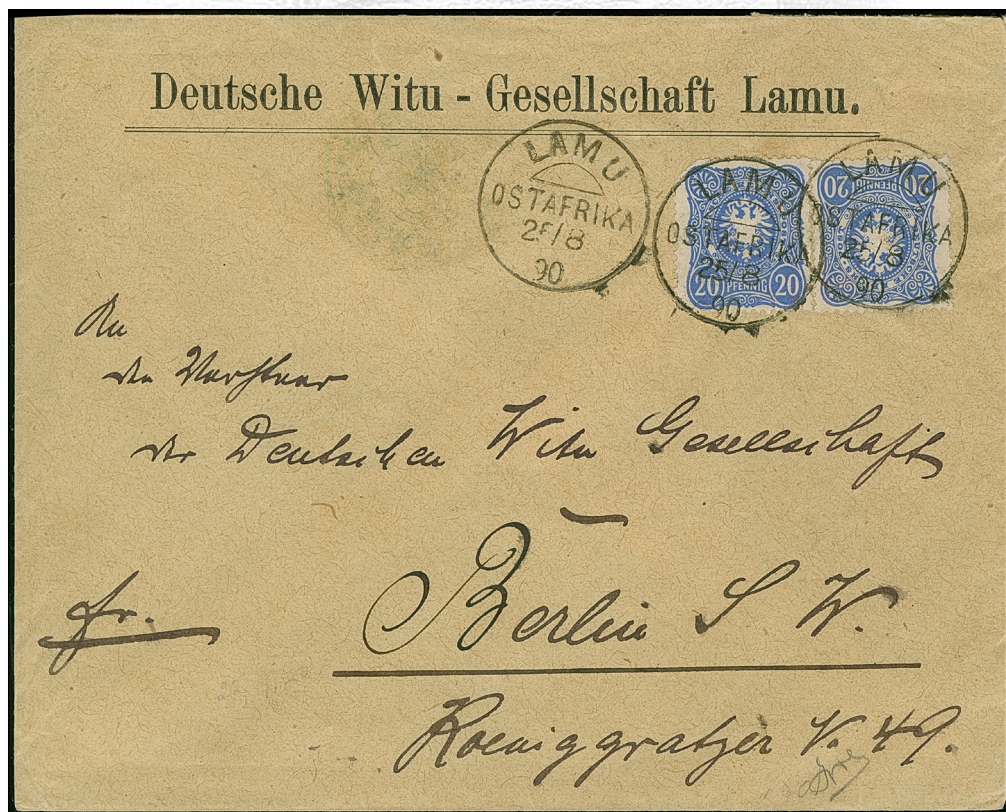 Deutsche Witu - Gesellschaft Lamu.
LAMU
OSTAFRIKA
25/8
90
LAMU
OSTAFRIKA
25/8
90
20 PFENNIG 20
LAMU
OSTAFRIKA
25/8
90
20 PFENNIG 20
An
den Vorstand
der Deutschen Witu Gesellschaft
fr.
Berlin S W.
Koeniggratzer V. 49.